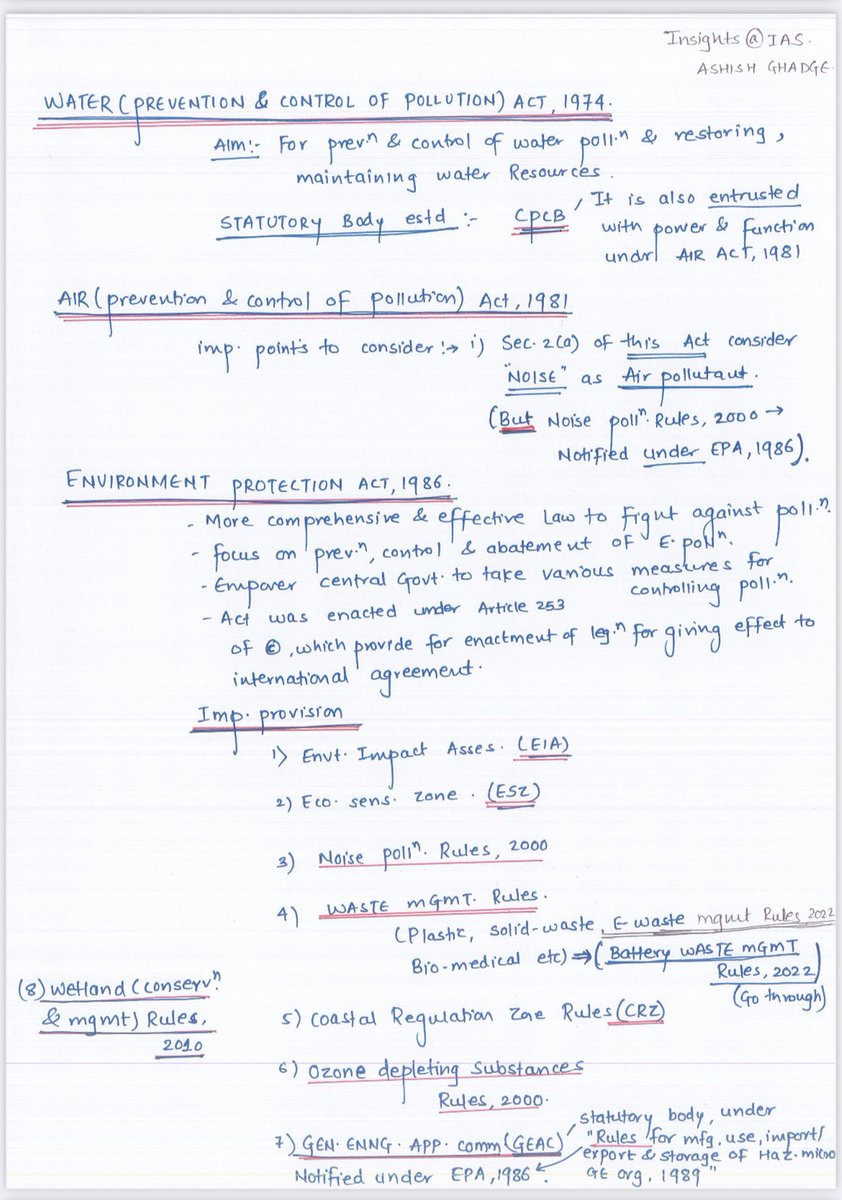 Insights @ IAS.
ASHISH GHADGE.
WATER (PREVENTION & CONTROL OF POLLUTION) ACT, 1974.
AIM:- For prevn & control of water poll.n & restoring,
maintaining water Resources.
STATUTORY Body estd :- CPCB, It is also entrusted
with power & function
undrl AIR ACT, 1981
AIR (prevention & control of pollution) Act, 1981
imp. points to consider :→ i) Sec. 2(a) of this Act consider
"NOISE" as Air pollutant.
(But Noise polln. Rules, 2000 →
Notified under EPA, 1986).
ENVIRONMENT PROTECTION ACT, 1986.
- More comprehensive & effective Law to Fight against poll.n.
- focus on prev.n, control & abatement of E. polln.
- Empower central Govt. to take various measures for
controlling poll.n.
- Act was enacted under Article 253
of ©, which provide for enactment of leg.n for giving effect to
international agreement.
Imp. provision
1) Envt. Impact Asses. (EIA)
2) Eco. sens. zone. (ESZ)
3) Noise polln. Rules, 2000
4) WASTE MGMT. Rules.
(Plastic, solid-waste, E-waste mgmt Rules, 2022
Bio-medical etc) ⇒ (Battery WASTE MGMT
Rules, 2022)
(Go through)
5) Coastal Regulation Zone Rules (CRZ)
6) Ozone depleting substances
Rules, 2000.
7) GEN. ENNG. APP. comm (GEAC)
Notified under EPA, 1986.
statutory body, under
"Rules for mfg, use, import/
export & storage of Haz. micro
GE org, 1989"
(8) Wetland (conserv.n
& mgmt) Rules,
2010